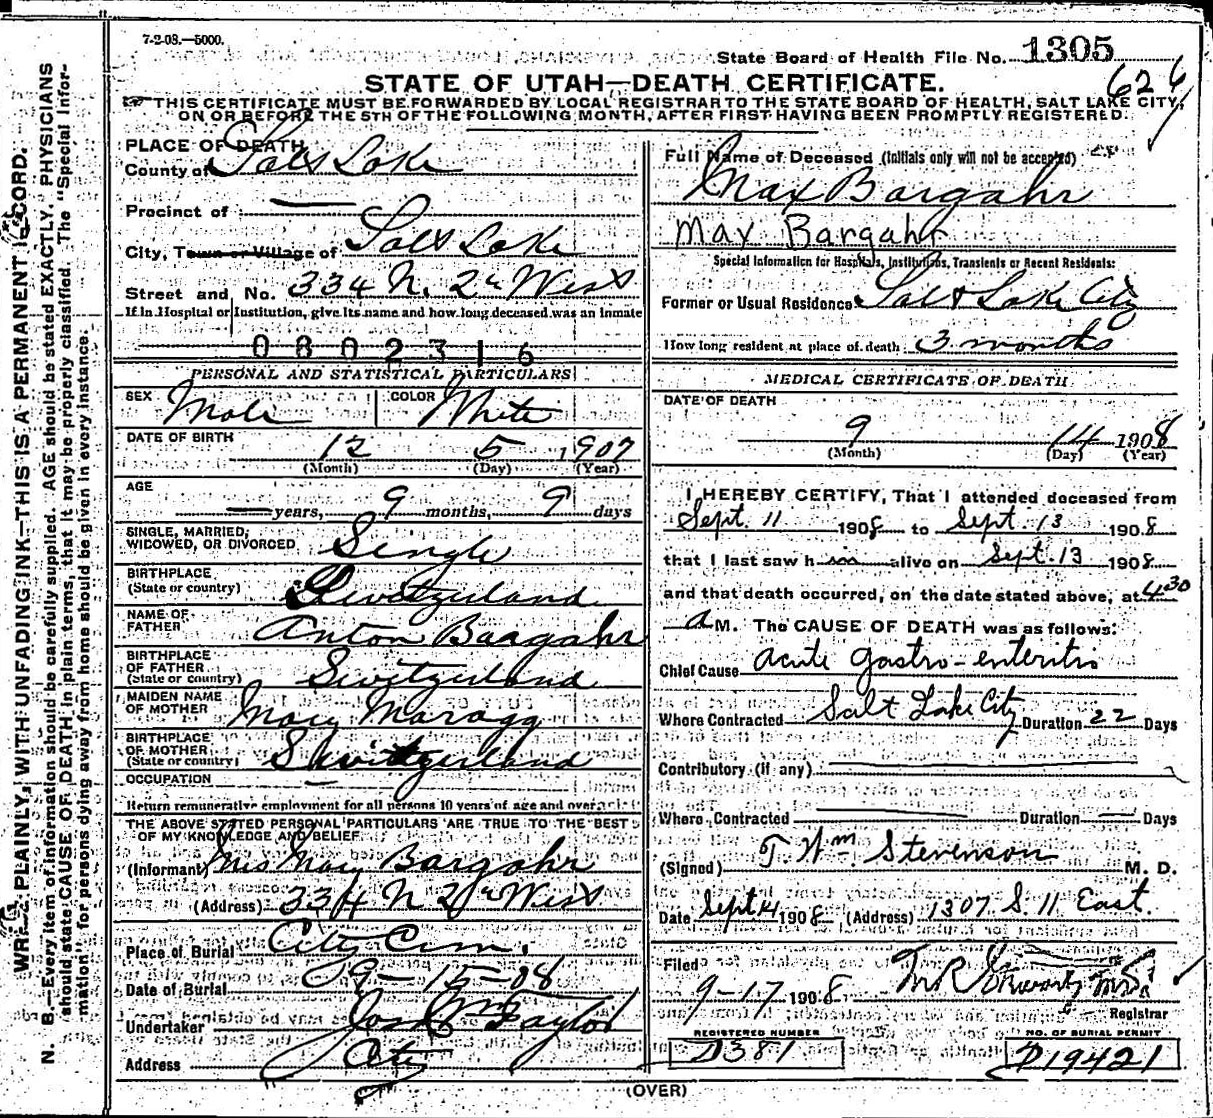 7-2-08.—5000.
State Board of Health File No. 1305
626
STATE OF UTAH—DEATH CERTIFICATE.
THIS CERTIFICATE MUST BE FORWARDED BY LOCAL REGISTRAR TO THE STATE BOARD OF HEALTH, SALT LAKE CITY,
ON OR BEFORE THE 5TH OF THE FOLLOWING MONTH, AFTER FIRST HAVING BEEN PROMPTLY REGISTERED.
WRITE PLAINLY, WITH UNFADING INK—THIS IS A PERMANENT RECORD.
N. B.—Every item of information should be carefully supplied. AGE should be stated EXACTLY. PHYSICIANS
should state CAUSE OF DEATH in plain terms, that it may be properly classified. The "Special Infor-
mation" for persons dying away from home should be given in every instance.
PLACE OF DEATH
County of Salt Lake
Precinct of —
City, Town or Village of Salt Lake
Street and No. 334 N. 2nd West
If in Hospital or Institution, give its name and how long deceased was an inmate
0802316
PERSONAL AND STATISTICAL PARTICULARS
SEX Male COLOR White
DATE OF BIRTH 12 5 1907
(Month) (Day) (Year)
AGE — years, 9 months, 9 days
SINGLE, MARRIED,
WIDOWED, OR DIVORCED Single
BIRTHPLACE
(State or country) Switzerland
NAME OF
FATHER Anton Bargahr
BIRTHPLACE
OF FATHER
(State or country) Switzerland
MAIDEN NAME
OF MOTHER Mary Maragg
BIRTHPLACE
OF MOTHER
(State or country) Switzerland
OCCUPATION —
Return remunerative employment for all persons 10 years of age and over
THE ABOVE STATED PERSONAL PARTICULARS ARE TRUE TO THE BEST
OF MY KNOWLEDGE AND BELIEF
(Informant) Mrs May Bargahr
(Address) 334 N 2nd West
Place of Burial City Cem.
Date of Burial 9-15-08
Undertaker Jos Wm Taylor
Address City
Full Name of Deceased (Initials only will not be accepted)
Max Bargahr
Max Bargahr
Special Information for Hospitals, Institutions, Transients or Recent Residents:
Former or Usual Residence Salt Lake City
How long resident at place of death 3 months
MEDICAL CERTIFICATE OF DEATH
DATE OF DEATH
9 14 1908
(Month) (Day) (Year)
I HEREBY CERTIFY, That I attended deceased from
Sept. 11 1908 to Sept. 13 1908
that I last saw h im alive on Sept. 13 1908
and that death occurred, on the date stated above, at 4 30
a M. The CAUSE OF DEATH was as follows:
Chief Cause acute gastro-enteritis
Where Contracted Salt Lake City Duration 22 Days
Contributory (if any)
Where Contracted — Duration — Days
(Signed) T. Wm Stevenson M. D.
Date Sept 14 1908 (Address) 1307 S. 11 East.
Filed
9-17 1908
Registrar
REGISTERED NUMBER NO. OF BURIAL PERMIT
D381 D19421
(OVER)